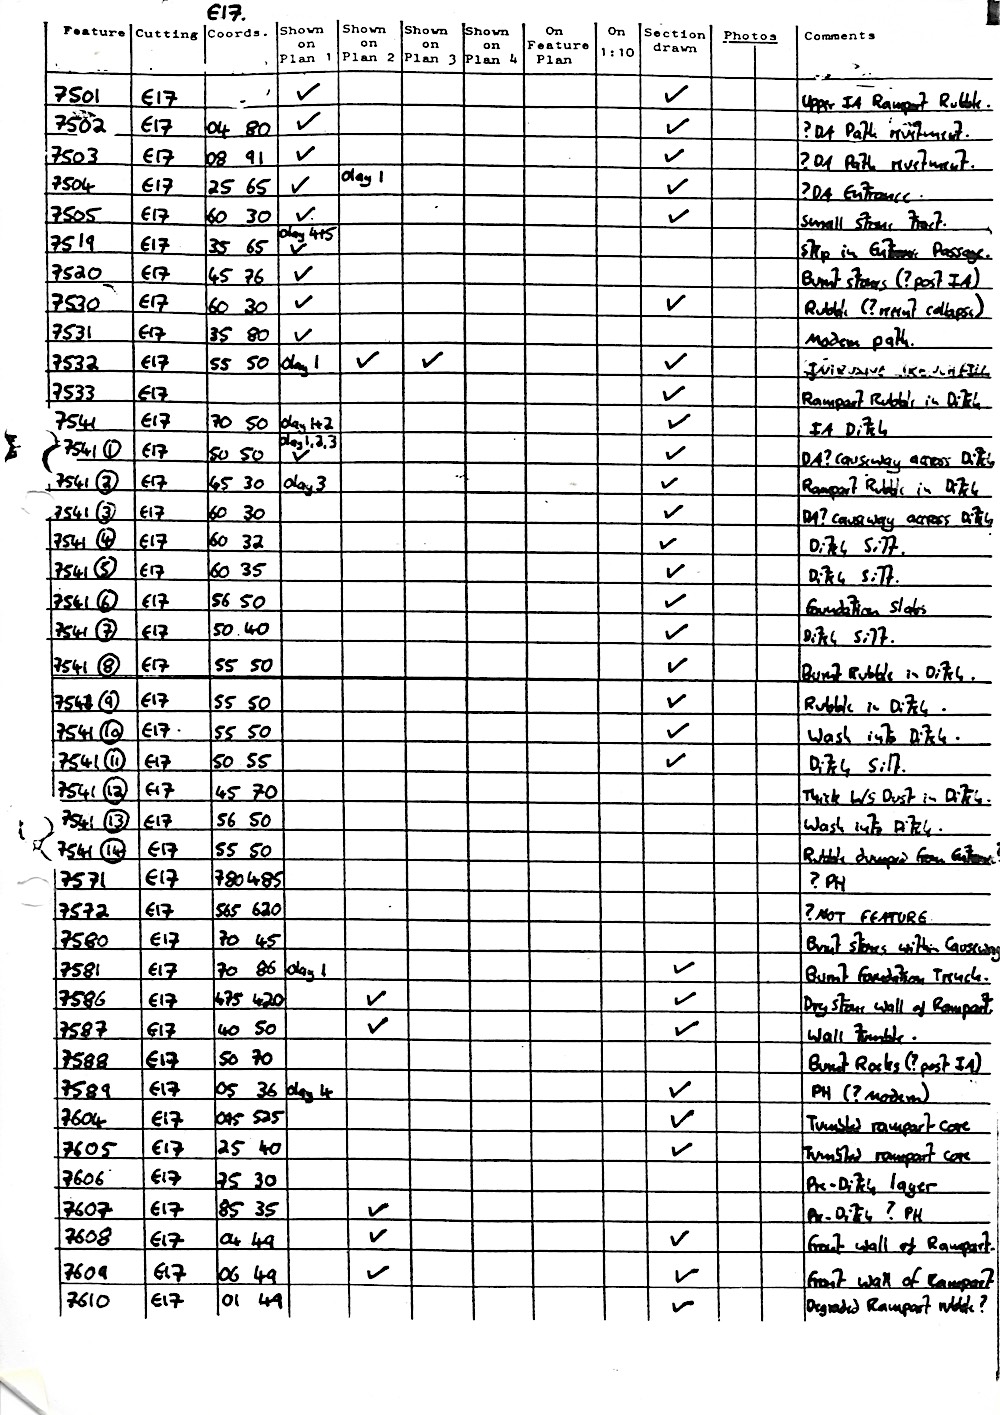 E17.
Feature Cutting Coords. Shown on Plan 1 Shown on Plan 2 Shown on Plan 3 Shown on Plan 4 On Feature Plan On 1:10 Section drawn Photos Comments
7501 E17 ✓ ✓ Upper IA Rampart Rubble.
7502 E17 04 80 ✓ ✓ ?DA Path revetment.
7503 E17 08 91 ✓ ✓ ?DA Path revetment.
7504 E17 25 65 ✓ day 1 ✓ ?DA Entrance.
7505 E17 60 30 ✓ ✓ Small stone
7519 E17 35 65 day 4+5 ✓ in Entrance Passage.
7520 E17 45 76 ✓ Burnt stones (?post IA)
7530 E17 60 30 ✓ ✓ Rubble (?recent collapse)
7531 E17 35 80 ✓ Modern path.
7532 E17 55 50 day 1 ✓ ✓ ✓
7533 E17 ✓ Rampart Rubble in Ditch
7541 E17 70 50 day 1+2 ✓ IA Ditch
7541 ① E17 50 50 day 1,2,3 ✓ ✓ DA? causeway across Ditch
7541 ② E17 45 30 day 3 ✓ Rampart Rubble in Ditch
7541 ③ E17 60 30 ✓ DA? causeway across Ditch
7541 ④ E17 60 32 ✓ Ditch Silt.
7541 ⑤ E17 60 35 ✓ Ditch Silt.
7541 ⑥ E17 56 50 ✓ Foundation Slabs
7541 ⑦ E17 50.40 ✓ Ditch Silt.
7541 ⑧ E17 55 50 ✓ Burnt Rubble in Ditch.
7541 ⑨ E17 55 50 ✓ Rubble in Ditch.
7541 ⑩ E17. 55 50 ✓ Wash into Ditch.
7541 ⑪ E17 50 55 ✓ Ditch Silt.
7541 ⑫ E17 45 70 Thick L/S Dust in Ditch.
7541 ⑬ E17 56 50 Wash into Ditch.
7541 ⑭ E17 55 50 Rubble dumped from Entrance?
7571 E17 780 485 ? PH
7572 E17 565 620 ? NOT FEATURE
7580 E17 70 45 Burnt stones within Causeway
7581 E17 70 86 day 1 ✓ Burnt Foundation Trench.
7586 E17 475 420 ✓ ✓ Dry stone wall of Rampart.
7587 E17 40 50 ✓ ✓ Wall Tumble.
7588 E17 50 70 Burnt Rocks (?post IA)
7589 E17 05 36 day 4 ✓ PH (?modern)
7604 E17 095 525 ✓ Tumbled rampart core
7605 E17 25 40 ✓ Tumbled rampart core
7606 E17 75 30 Pre-Ditch layer
7607 E17 85 35 ✓ Pre-Ditch ? PH
7608 E17 04 49 ✓ ✓ Front wall of Rampart.
7609 E17 06 49 ✓ ✓ Front wall of Rampart
7610 E17 01 49 ✓ Degraded Rampart rubble?